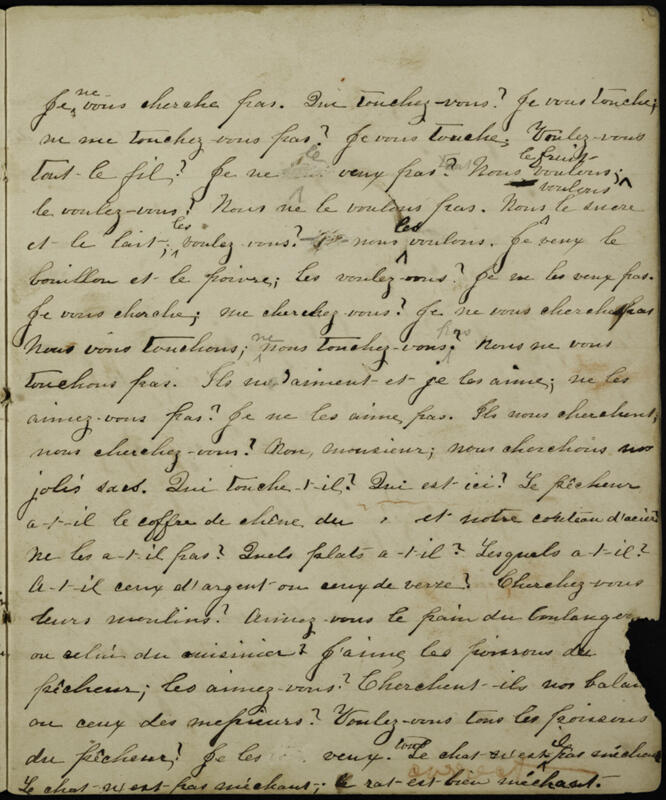 Je ne vous cherche pas. Qui touchez-vous? Je vous touche;
ne me touchez-vous pas? Je vous touche; Voulez-vous
tout le fil? Je ne le veux pas? Nous voulons le fruit;
le voulez-vous? Nous ne le voulons pas. Nous voulons le sucre
et le lait; les voulez-vous? nous les voulons. Je veux le
bouillon et le poivre; les voulez-vous? Je ne les veux pas.
Je vous cherche; me cherchez-vous? Je ne vous cherche pas
Nous vous touchons; ne nous touchez-vous pas? Nous ne vous
touchons pas. Ils m'aiment et je les aime; ne les
aimez-vous pas? Je ne les aime pas. Ils nous cherchent;
nous cherchez-vous? Non, monsieur; nous cherchons nos
jolis sacs. Qui touche-t-il? Qui est ici? Le pêcheur
a-t-il le coffre de chêne du , et notre couteau d'acier?
Ne les a-t-il pas? Quels plats a-t-il? Lesquels a-t-il?
A-t-il ceux d'argent ou ceux de verre? Cherchez-vous
leurs moulins? Aimez-vous le pain du boulanger
ou celui du cuisinier? J'aime les poissons du
pêcheur; les aimez-vous? Cherchent-ils nos balais
ou ceux des messieurs? Voulez-vous tous les poissons
du pêcheur? Je les veux tous. Le chat n'est-il pas méchant
Le chat n'est pas méchant; le rat est bien méchant.